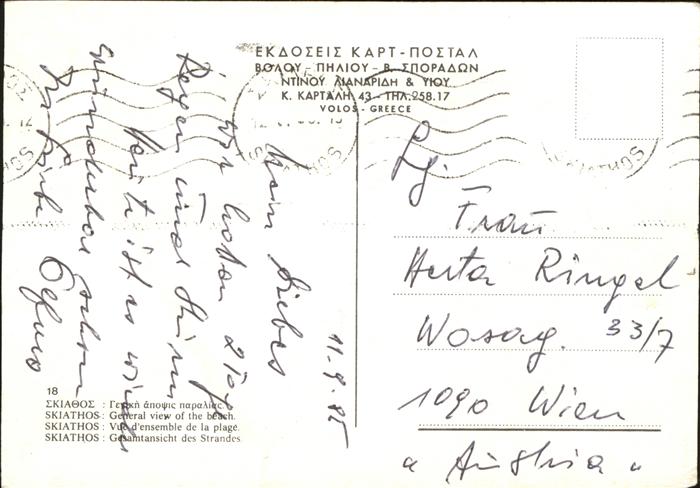 ΕΚΔΟΣΕΙΣ ΚΑΡΤ-ΠΟΣΤΑΛ
ΒΟΛΟΥ - ΠΗΛΙΟΥ - Β. ΣΠΟΡΑΔΩΝ
ΝΤΙΝΟΥ ΛΙΑΝΑΡΙΔΗ & ΥΙΟΥ
Κ. ΚΑΡΤΑΛΗ 43 - ΤΗΛ. 258.17
VOLOS - GREECE
11.9.85
Mein Liebes
Wir hatten 2 Tag
Regen und Sturm
Heute ist es wieder
wunderbar schön
18
ΣΚΙΑΘΟΣ : Γενική άποψις παραλίας.
SKIATHOS : General view of the beach.
SKIATHOS : Vue d'ensemble de la plage.
SKIATHOS : Gesamtansicht des Strandes.
Frau
Herta Ringel
Wasag. 33/7
1090 Wien
"Austria"
SKIATHOS